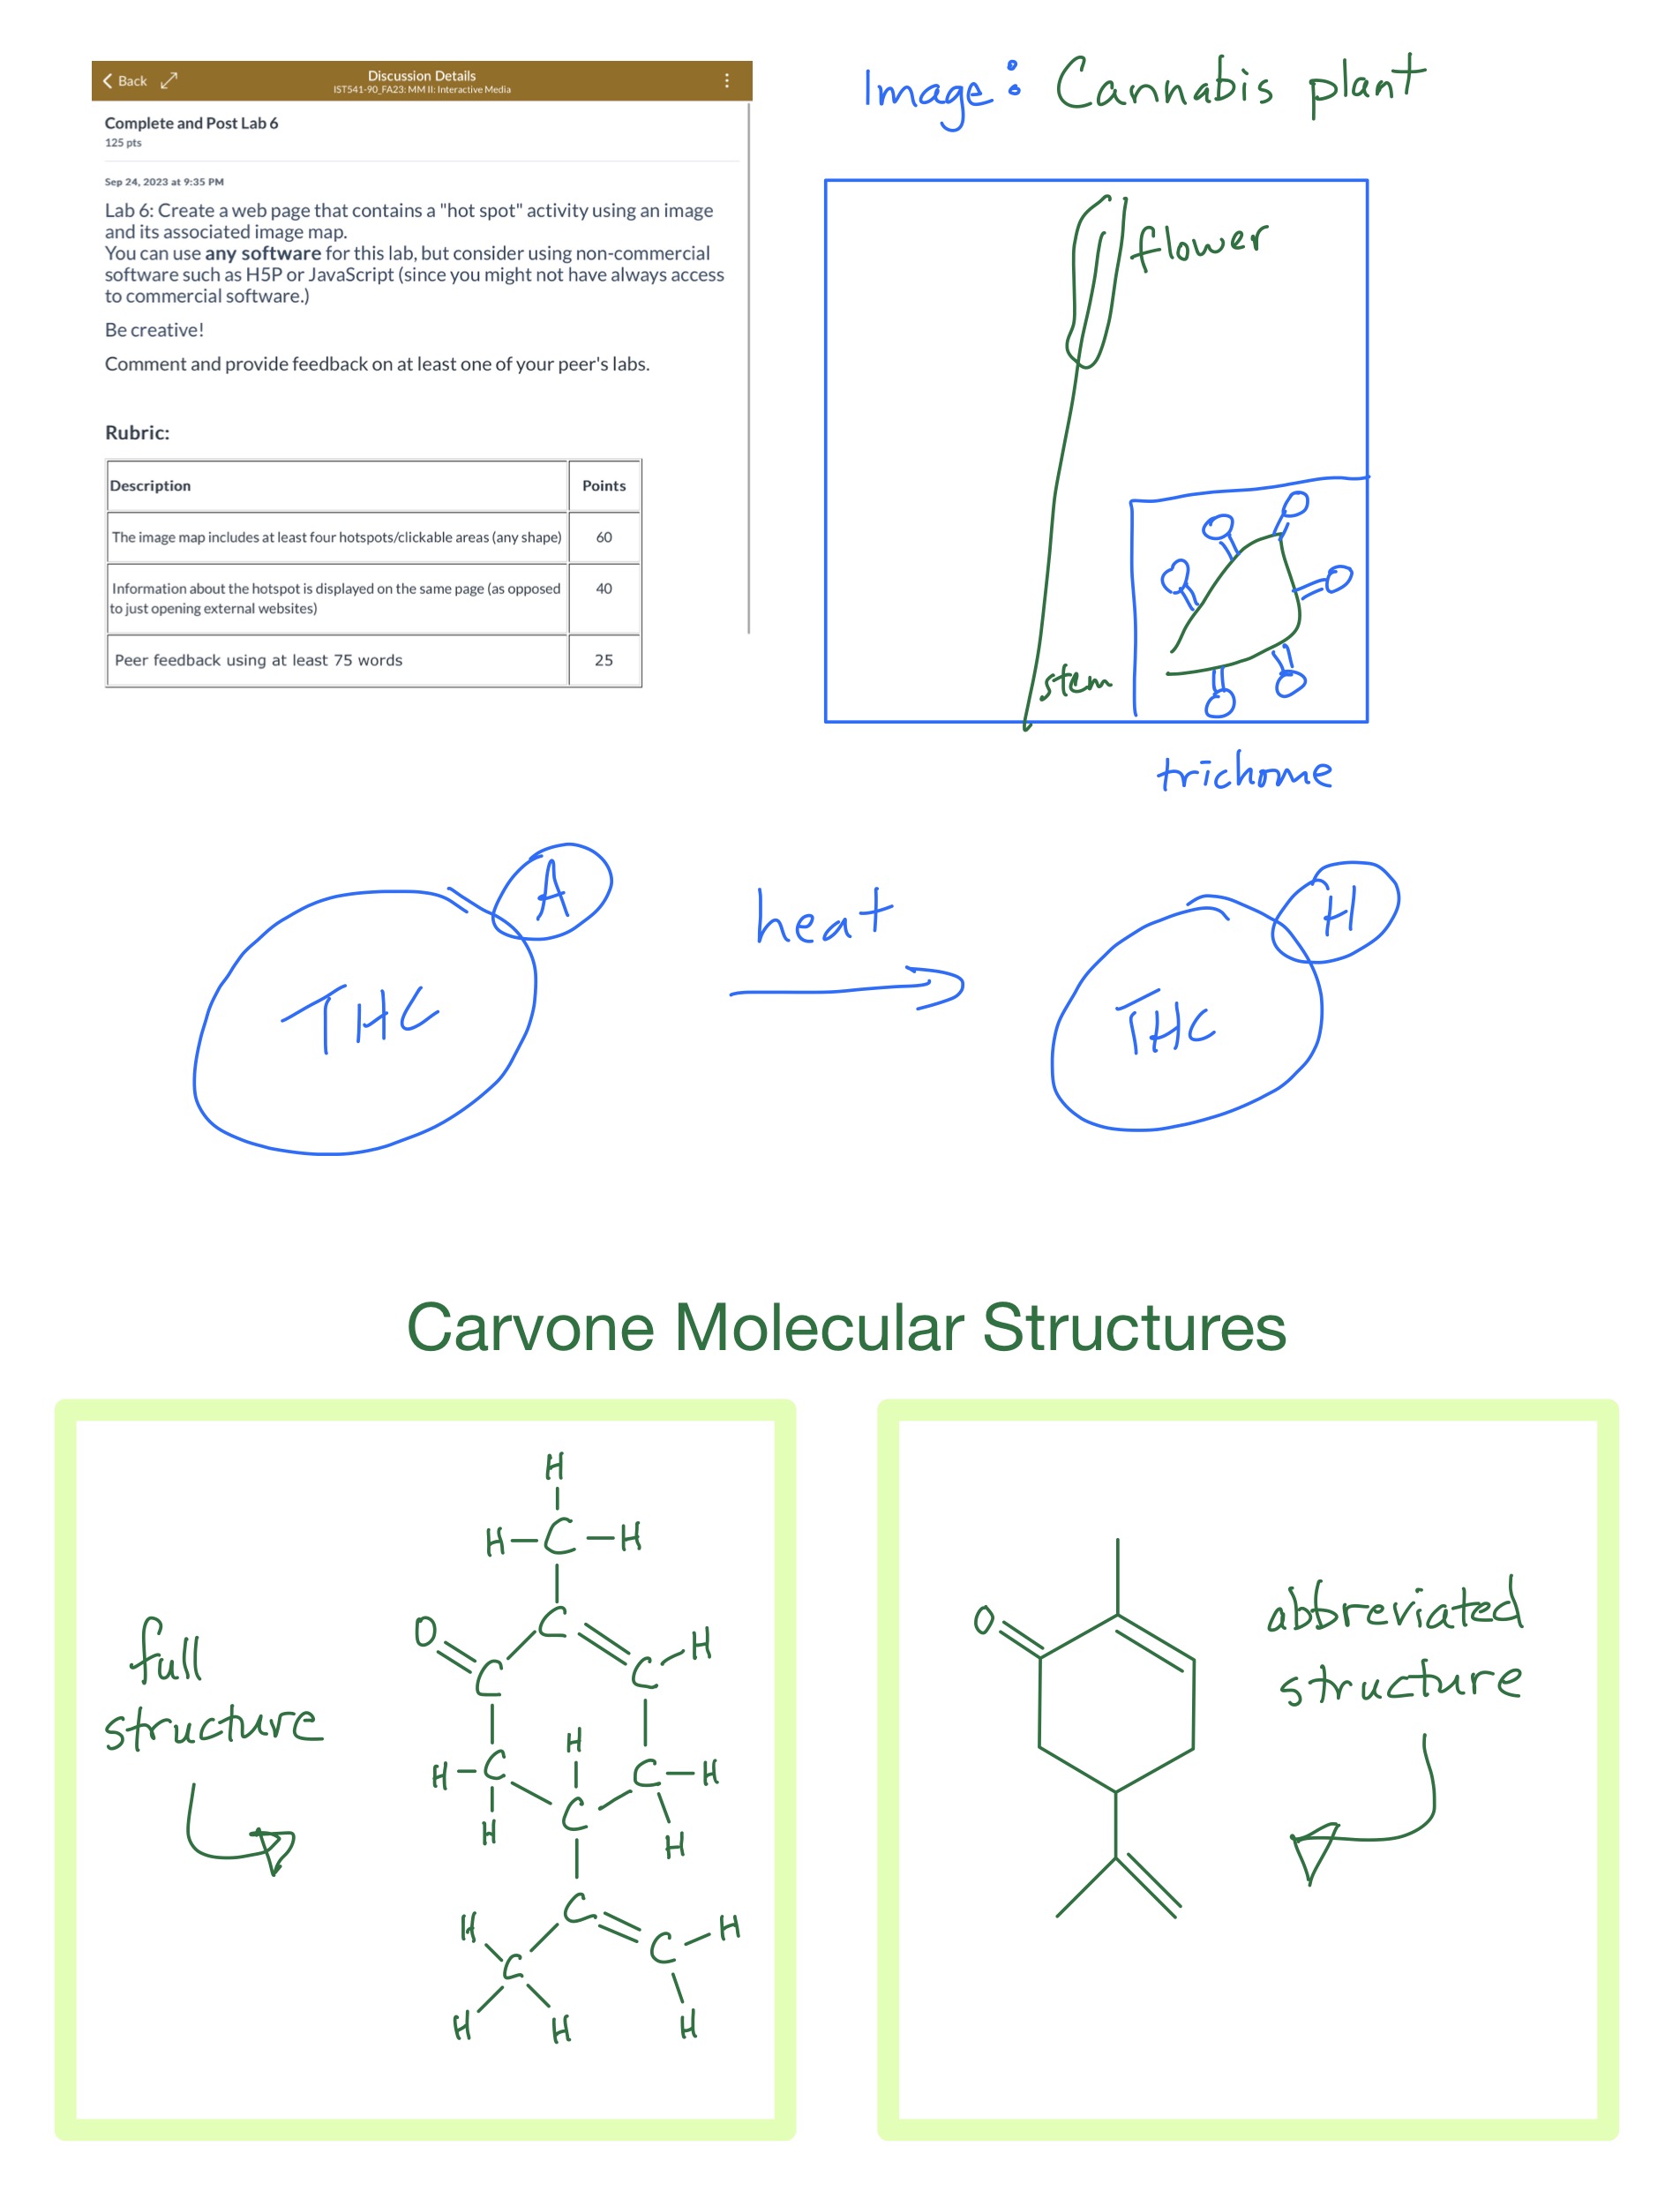 Back
Discussion Details
IST541-90_FA23: MM II: Interactive Media
Complete and Post Lab 6
125 pts
Sep 24, 2023 at 9:35 PM
Lab 6: Create a web page that contains a "hot spot" activity using an image
and its associated image map.
You can use any software for this lab, but consider using non-commercial
software such as H5P or JavaScript (since you might not have always access
to commercial software.)
Be creative!
Comment and provide feedback on at least one of your peer's labs.
Rubric:
Description Points
The image map includes at least four hotspots/clickable areas (any shape) 60
Information about the hotspot is displayed on the same page (as opposed
to just opening external websites) 40
Peer feedback using at least 75 words 25
Image: Cannabis plant
flower
stem
trichome
A
THC
heat
H
THC
Carvone Molecular Structures
full
structure
H
H-C-H
O C
C C H
H
H-C C-H
C
H H
C
H C H
C
H H H
abbreviated
structure
O